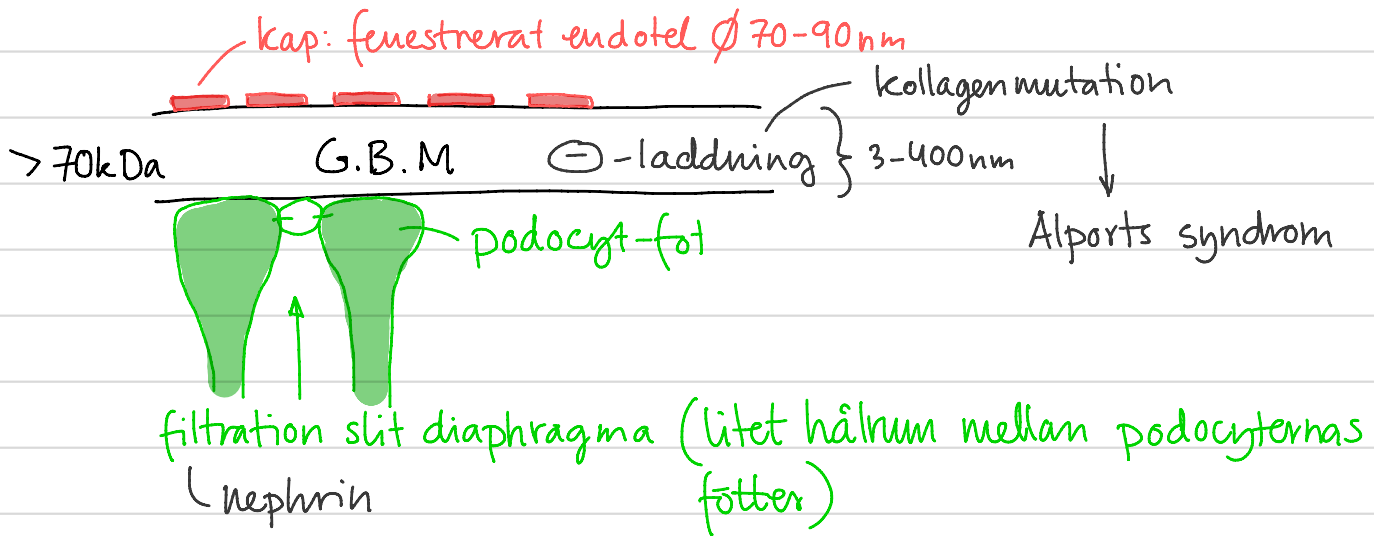 kap: fenestrerat endotel Ø 70-90nm
kollagenmutation
>70kDa G.B.M ⊖-laddning } 3-400nm
Alports syndrom
podocyt-fot
filtration slit diaphragma (litet hålrum mellan podocyternas
nephrin fötter)